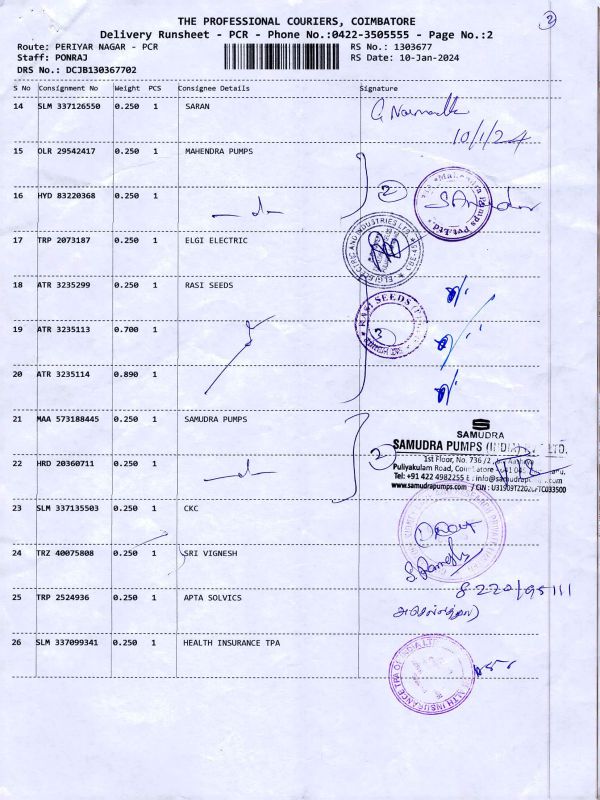 2
THE PROFESSIONAL COURIERS, COIMBATORE
Delivery Runsheet - PCR - Phone No.:0422-3505555 - Page No.:2
Route: PERIYAR NAGAR - PCR
RS No.: 1303677
Staff: PONRAJ
RS Date: 10-Jan-2024
DRS No.: DCJB130367702
S No Consignment No Weight PCS Consignee Details Signature
14 SLM 337126550 0.250 1 SARAN
10/1/24
15 OLR 29542417 0.250 1 MAHENDRA PUMPS
16 HYD 83220368 0.250 1
2
Pumps Pvt.Ltd.
17 TRP 2073187 0.250 1 ELGI ELECTRIC
ELGI ELECTRIC AND INDUSTRIES LTD.
18 ATR 3235299 0.250 1 RASI SEEDS
RASI SEEDS
3
19 ATR 3235113 0.700 1
20 ATR 3235114 0.890 1
21 MAA 573188445 0.250 1 SAMUDRA PUMPS
2
SAMUDRA
SAMUDRA PUMPS (INDIA) LTD.
1st Floor, No. 736/2,
Puliyakulam Road, Coimbatore
Tel: +91 422 4982255
www.samudrapumps.com
22 HRD 20360711 0.250 1
23 SLM 337135503 0.250 1 CKC
24 TRZ 40075808 0.250 1 SRI VIGNESH
25 TRP 2524936 0.250 1 APTA SOLVICS
26 SLM 337099341 0.250 1 HEALTH INSURANCE TPA
HEALTH INSURANCE TPA OF INDIA LTD